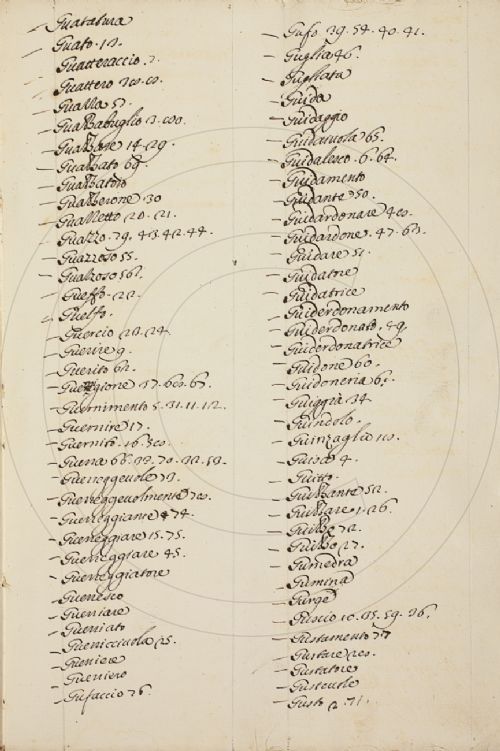 – Guatatura
– Guato. 12.
– Guatteraccio. 2.
– Guattero
– Guazza 57.
– Guazzabuglio
– Guazzare 14. 29.
– Guazzato 69.
– Guazzatoio
– Guazzerone. 30
– Guazzetto 20. 21.
– Guazzo. 79. 43. 42. 44.
– Guazzoso 55.
– Gueffo. 22.
– Guelfo.
– Guercio 23. 24.
– Guerire 9.
– Guerito 62.
– Guernimento 5. 31. 11. 12.
– Guernire 17.
– Guernito. 16.
– Guerra 66.
– Guerreggevole
– Guerreggevolmente
– Guerreggiante 74.
– Guerreggiare 15. 75.
– Guerreggiare 45.
– Guerreggiatore
– Guerresco
– Guerriare
– Guerriato
– Guerricciuola 25.
– Guerriere
– Guerriero
– Gufaccio 76.
– Gufo. 39. 54. 40. 41.
– Guglia 46.
– Gugliata
– Guida
– Guidaggio
– Guidaiuola 65.
– Guidalesco. 6. 64.
– Guidamento
– Guidante 50.
– Guidardonare
– Guidardone. 47. 63.
– Guidare 51.
– Guidatore
– Guidatrice
– Guiderdonamento
– Guiderdonato.
– Guiderdonatrice
– Guidone 60.
– Guidoneria
– Guiggia 34
– Guindolo.
– Guinzaglio 10.
– Guisa 4.
– Guitto.
– Guizzante 52.
– Guizzare 1. 26.
– Guizzo 27.
– Gumedra
– Gumina
– Gurge
– Guscio 10. 35. 59. 36.
– Gustamento 77
– Gustare
– Gustatore
– Gustevole
– Gusto 2. 71.